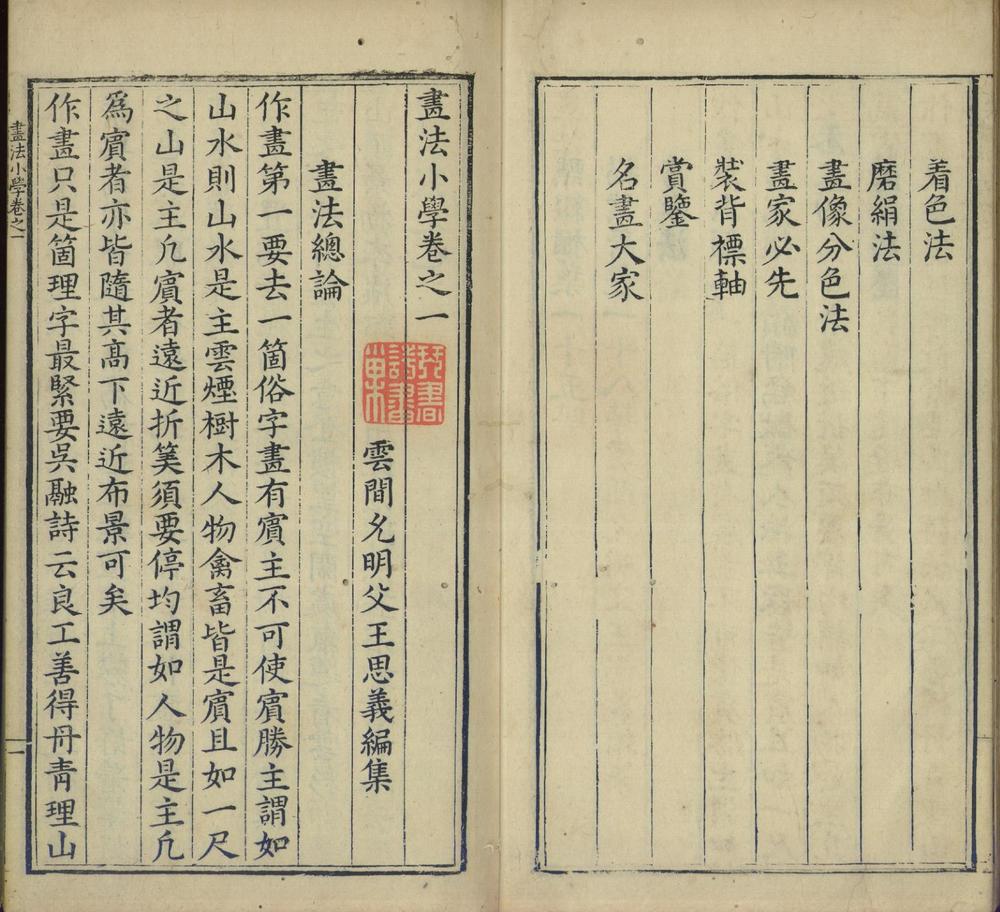 着色法
磨絹法
畫像分色法
畫家必先
裝背標軸
賞鑒
名畫大家
畫法小學卷之一
雲間允明父王思義編集
畫法總論
作畫第一要去一箇俗字畫有賔主不可使賔勝主謂如
山水則山水是主雲煙樹木人物禽畜皆是賔且如一尺
之山是主凢賔者遠近折筭須要停均謂如人物是主凢
爲賔者亦皆隨其髙下遠近布景可矣
作畫只是箇理字最緊要吳融詩云良工善得丹青理山
畫法小學卷之一
一